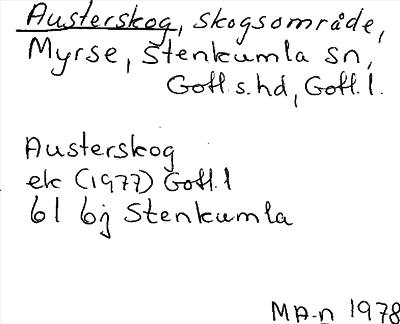 Austerskog, skogsområde,
Myrse, Stenkumla sn,
Gotl. s. hd, Gotl. l.
Austerskog
ek (1977) Gotl. l
61 6j Stenkumla
MA-n 1978